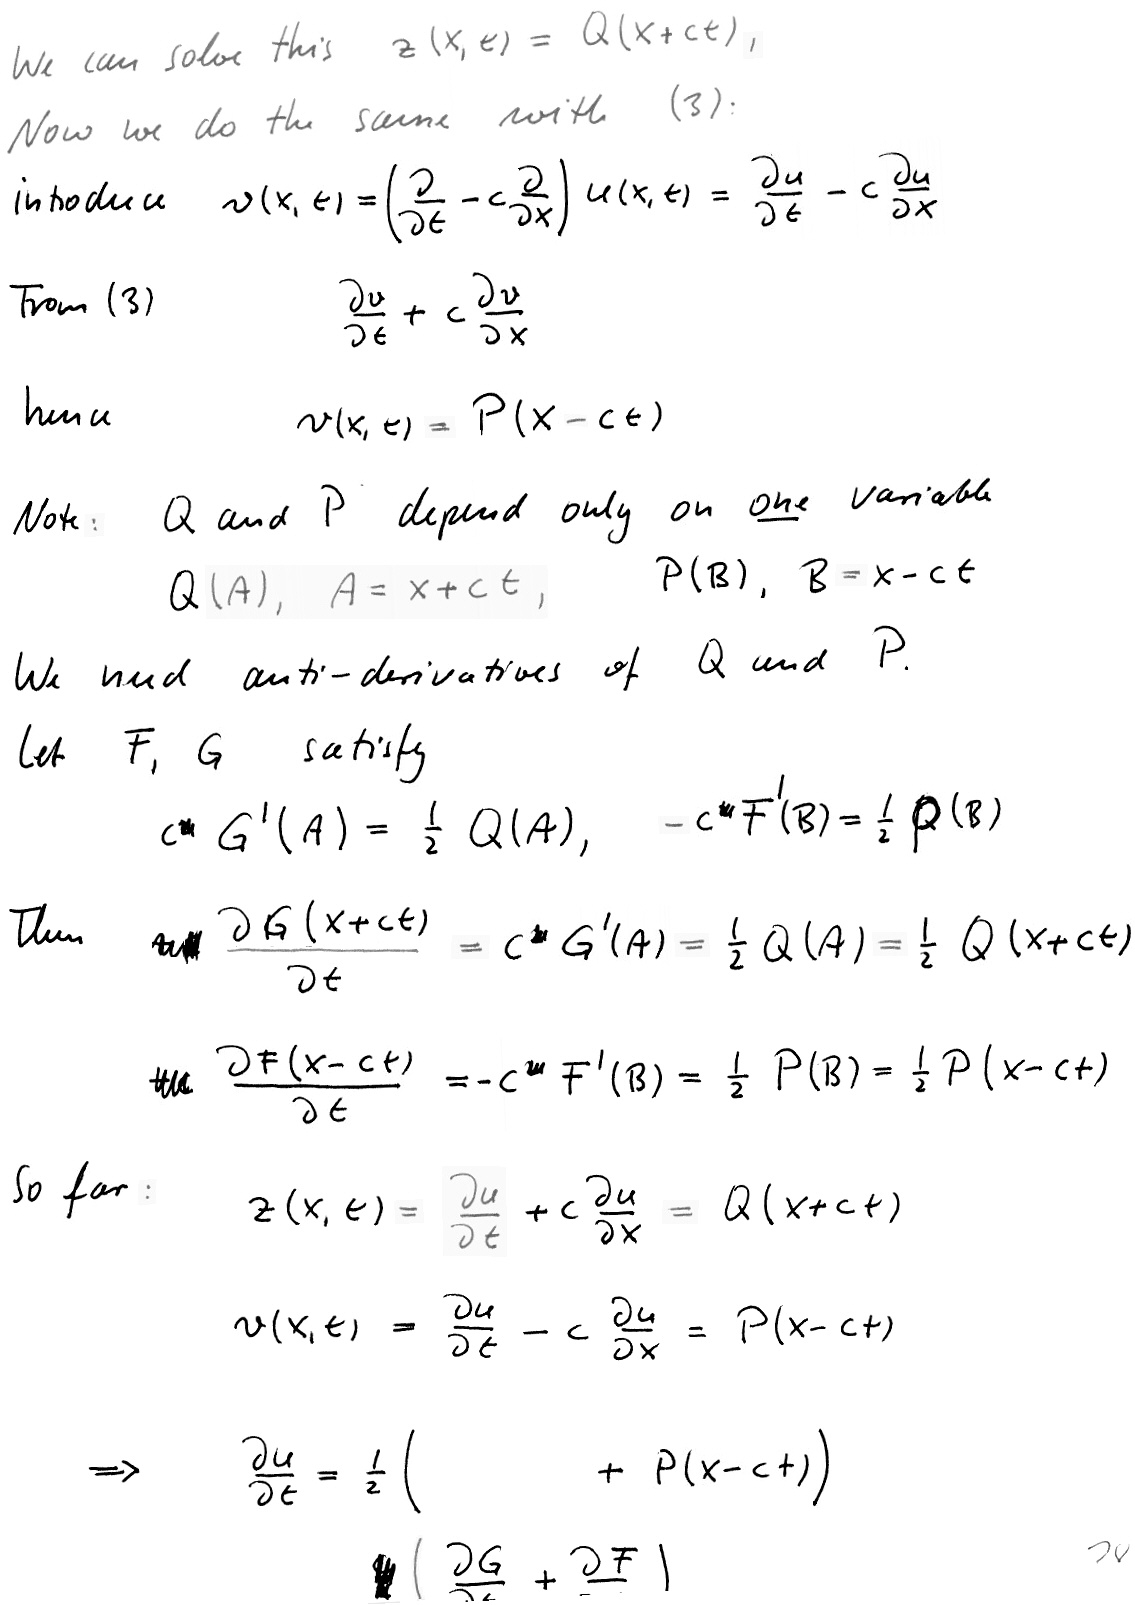 We can solve this z(x, t) = Q(x+ct),
Now we do the same with (3):
introduce v(x, t) = (∂/∂t - c ∂/∂x) u(x, t) = ∂u/∂t - c ∂u/∂x
From (3) ∂v/∂t + c ∂v/∂x
hence v(x, t) = P(x - ct)
Note: Q and P depend only on one variable
Q(A), A = x+ct, P(B), B = x-ct
We need anti-derivatives of Q and P.
Let F, G satisfy
c G'(A) = 1/2 Q(A), -c F'(B) = 1/2 P(B)
Then ∂G(x+ct)/∂t = c G'(A) = 1/2 Q(A) = 1/2 Q(x+ct)
∂F(x-ct)/∂t = -c F'(B) = 1/2 P(B) = 1/2 P(x-ct)
So far: z(x, t) = ∂u/∂t + c ∂u/∂x = Q(x+ct)
v(x, t) = ∂u/∂t - c ∂u/∂x = P(x-ct)
⇒ ∂u/∂t = 1/2 ( + P(x-ct))
( ∂G/∂t + ∂F )